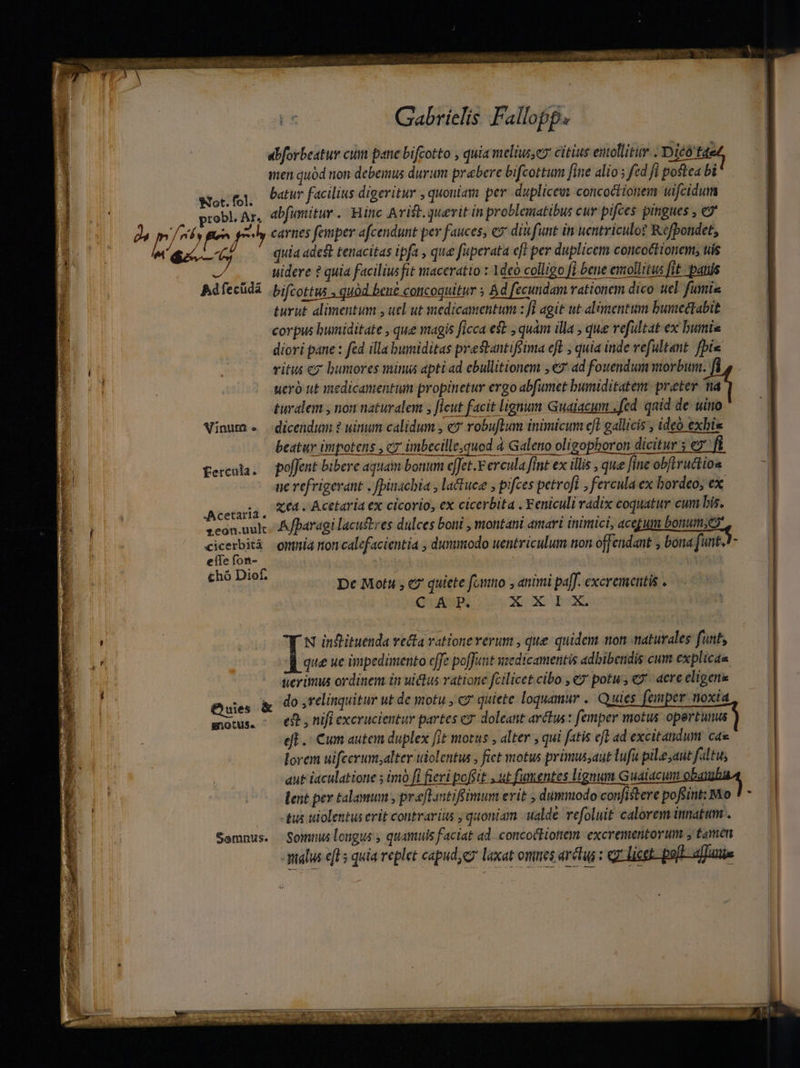 Gabrielis Fallopp.
abſorbeatur cùm pane biſcotto, quia melius,&amp; citius emollitur. Dico ta⸗
men quòd non debemus durum præbere biſcottum ſine alio; ſed ſi poſtea bi
Not. fol. batur facilius digeritur, quoniam per duplicem concoctionem uiſcidum
probl. Ar. abſumitur. Hinc Ariſt. quærit in problematibus cur piſces pingues, &amp;
carnes ſemper aſcendunt per fauces, &amp; diu ſunt in uentriculo? Reſpondet,
quia adeſt tenacitas ipſa, quæ ſuperata eſt per duplicem concoctionem, uis
uidere? quia facilius fit maceratio: Ideò colligo ſi bene emollitus ſit panis
Ad ſecūdā biſcottus, quòd bene concoquitur; Ad ſecundam rationem dico uel ſumi⸗
turut alimentum, uel ut medicamentum: ſi agit ut alimentum humectabit
corpus humiditate, quæ magis ſicca eſt, quàm illa, quæ reſultat ex humi⸗
diori pane: ſed illa humiditas præſtantiſſima eſt, quia inde reſultant ſpi⸗
ritus &amp; humores minus apti ad ebullitionem, &amp; ad fouendum morbum: ſi
uerò ut medicamentum propinetur ergo abſumet humiditatem præter na
turalem, non naturalem, ſicut facit lignum Guaiacum, ſed quid de uino
Vinum. dicendum? uinum calidum, &amp; robuſtum inimicum eſt gallicis, ideò exhi⸗
beatur impotens, &amp; imbecille,quod à Galeno oligophoron dicitur; &amp; ſi
Fercula. poſſent bibere aquam bonum eſſet. Fercula ſint ex illis, quæ ſine obſtructio⸗
ne refrigerant. ſpinachia, lactucæ, piſces petroſi, fercula ex hordeo, ex
Acetaria. zea. Acetaria ex cicorio, ex cicerbita. Feniculi radix coquatur cum his.
Leon.uult Aſparagi lacuſtres dulces boni, montani amari inimici, acetum bonum,&amp;
cicerbitā omnia non calefacientia, dummodo uentriculum non offendant, bona ſunt.
eſſe ſon-
chō Dioſ. De Motu, &amp; quiete ſomno, animi paſſ. excrementis.
CAP. XXIX.
IN inſtituenda recta ratione rerum, quæ quidem non naturales ſunt,
quæ ue impedimento eſſe poſſunt medicamentis adhibendis cum explica⸗
uerimus ordinem in uictus ratione ſcilicet cibo, &amp; potu, &amp; aere eligen⸗
Quies & do, relinquitur ut de motu, &amp; quiete loquamur. Quies ſemper noxia
motus. eſt, niſi excrucientur partes &amp; doleant artus: ſemper motus oportunus
eſt. Cum autem duplex ſit motus, alter, qui ſatis eſt ad excitandum ca⸗
lorem uiſcerum,alter uiolentus, fiet motus primus,aut luſu pilæ,aut ſaltu,
aut iaculatione; imò ſi fieri poſſit, ut ſumentes lignum Guaiacum obambu
lent per talamum, præſtantiſſimum erit, dummodo conſiſtere poſſint: Mo
tus uiolentus erit contrarius, quoniam ualde reſoluit calorem innatum.
Somnus. Somnus longus, quamuis faciat ad concoctionem excrementorum, tamen
malus eſt; quia replet capud,&amp; laxat omnes artus: &amp; licet poſt aſſum⸗